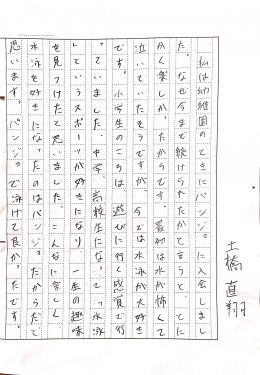 土橋直翔
私は幼稚園のときにバンジ。に入会しまし
た。なぜ今まで続けられたかと言うと、とに
かく楽しかったからです。最初は水が怖くて
泣いていたそうですが、今では水泳が大好き
です。小学生のころは、遊びに行く感覚で行
っていました。中学、高校生になって水泳
というスポーツが好きになり、一生の趣味
を見つけたと思いました。こんなに楽しく
水泳を好きになったのはバンジ。だからだて
思います。バンジ。で泳げて良かったです。